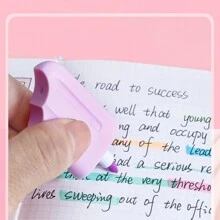 the road to success
well that young
and occupy
any of the lead
had a serious re
at the very thresho
lives sweeping out of the offic